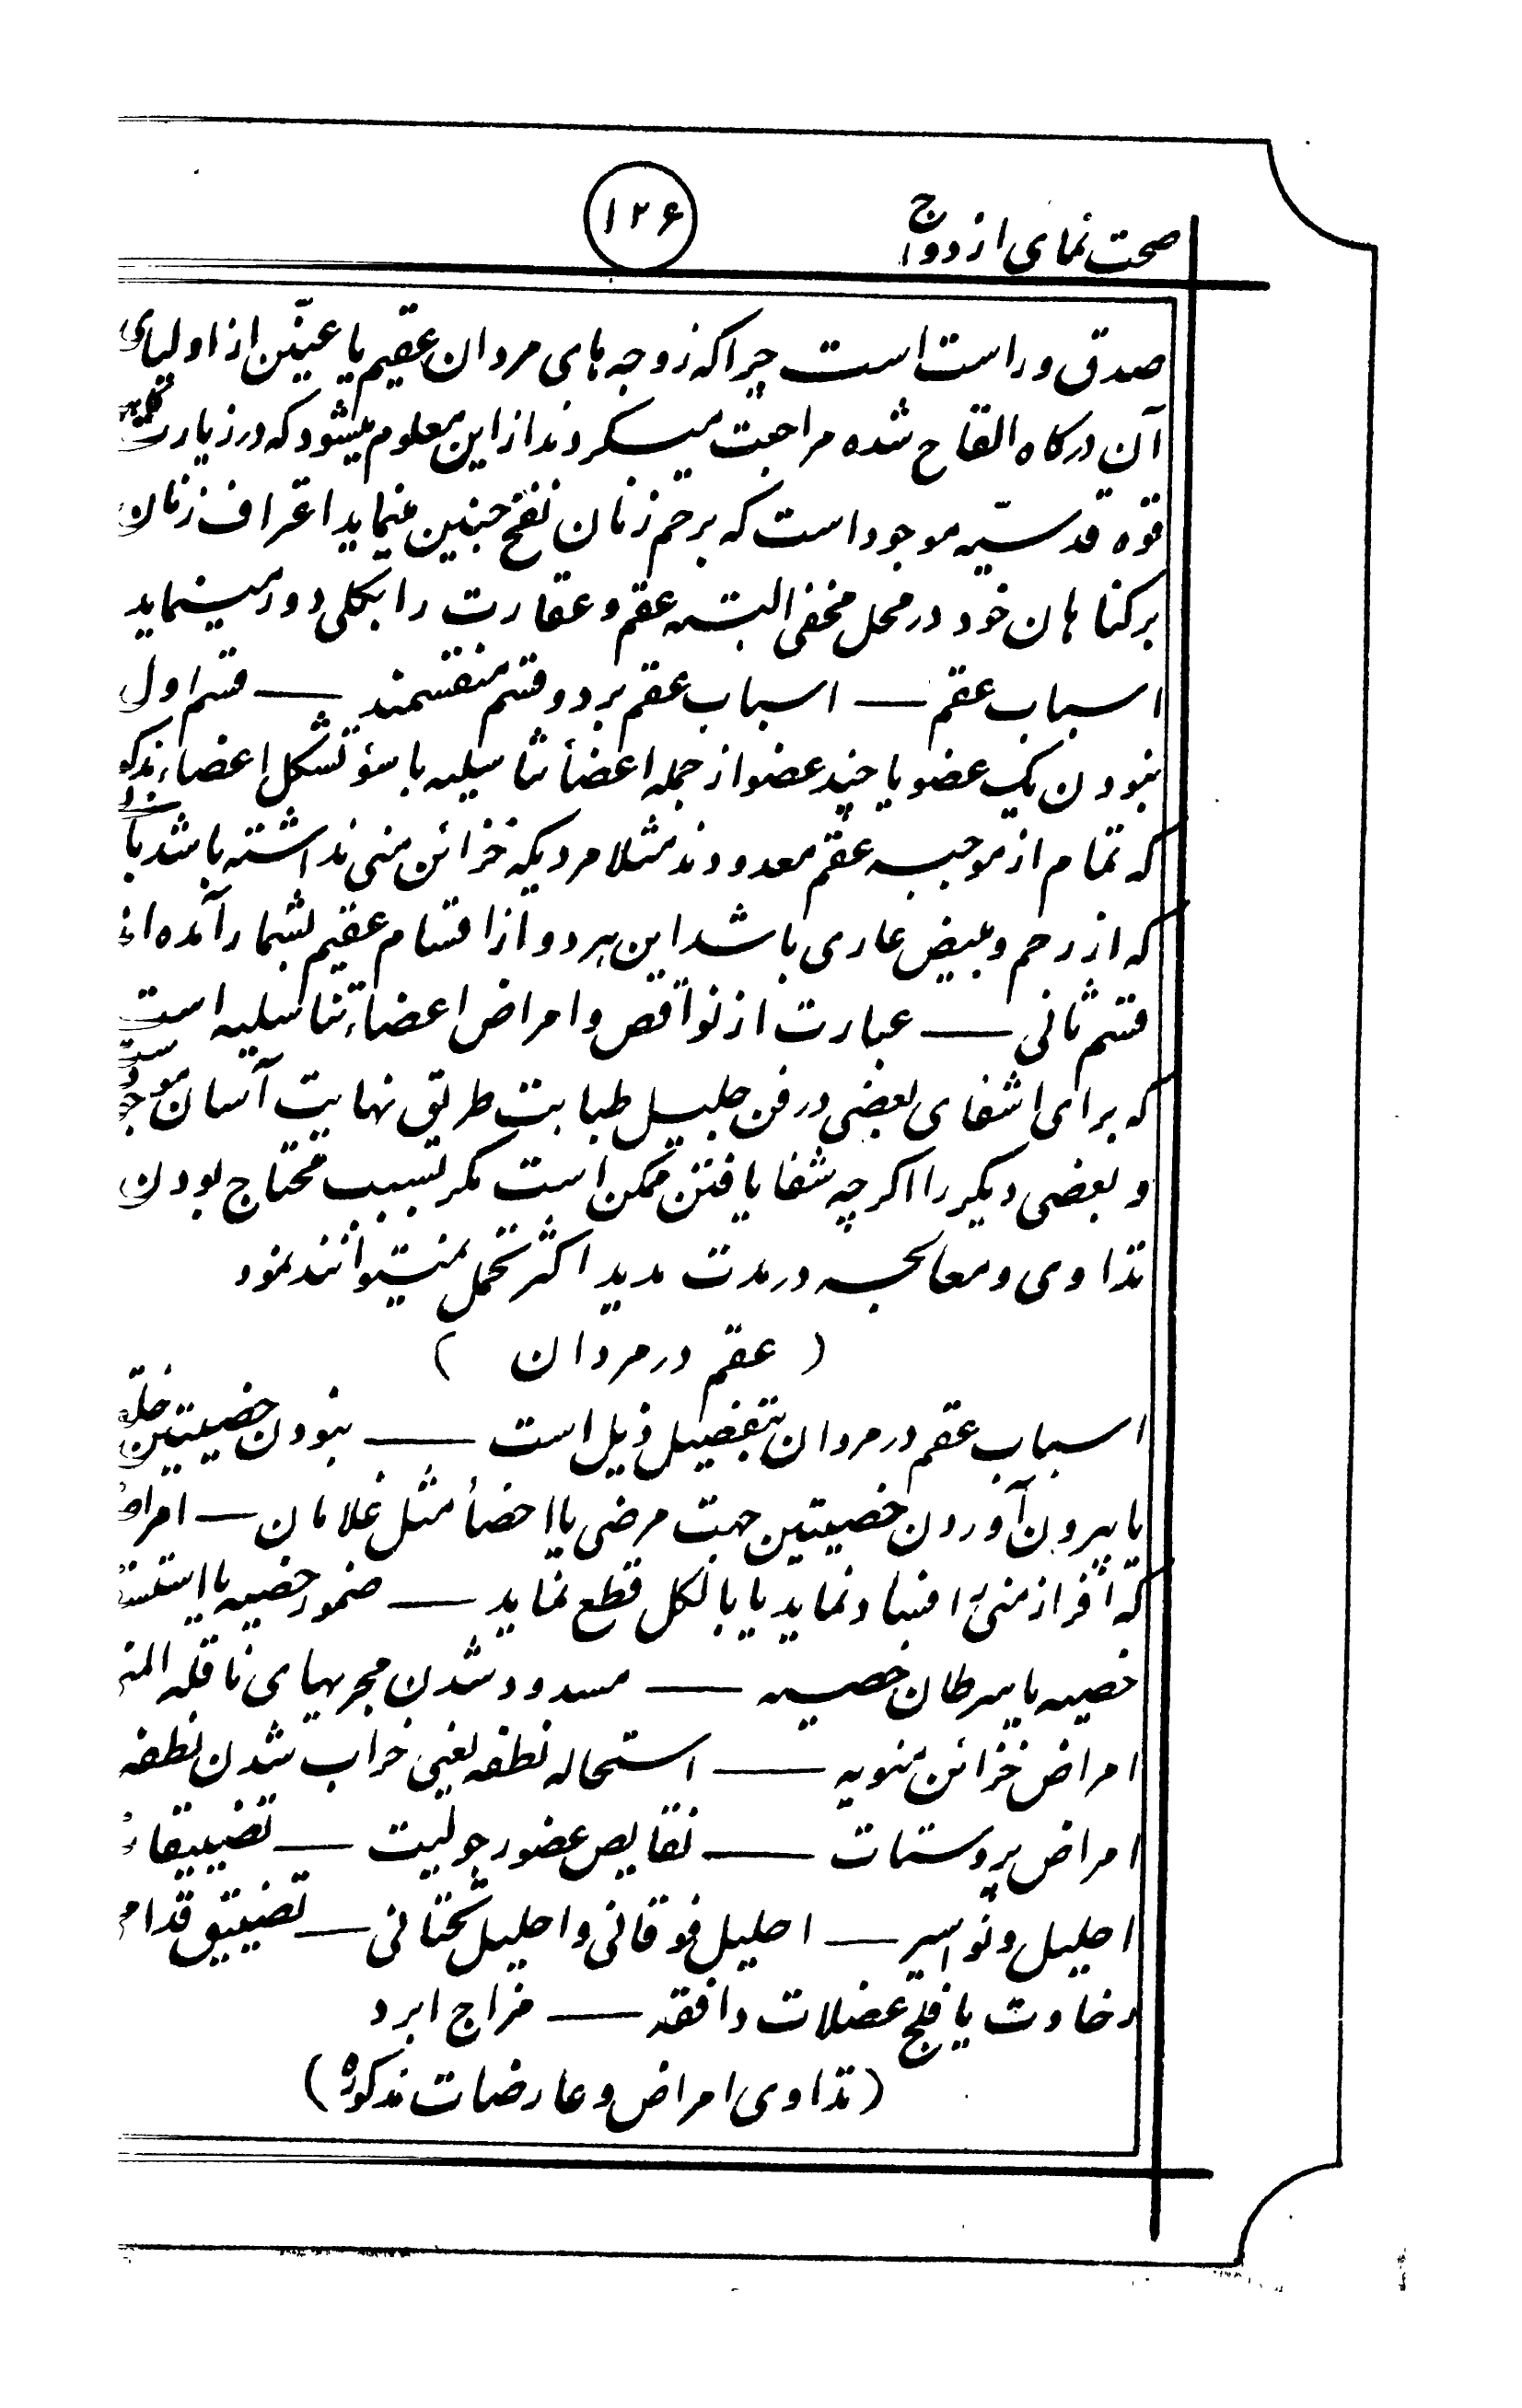 صحت نمای ازدواج
۱۲۶
صدق و راست است چراکه زوجه های مردان عقیم یا عینّن از اولیای
آن درکاه القاح شده مراجعت میکردند از این معلوم میشود که در زیارت
قوه قدسیّه موجود است که برحم زنان نفخ جنین مینماید اعتراف زنان
برکناهان خود در محل مخفی البته عقم و عقارت را بکلی دور مینماید
اسباب عقم — اسباب عقم بر دو قسم منقسمند — قسم اول
نبودن یک عضو یا چند عضو از جمله اعضأ تناسلیه یا سؤ تشکل اعضاء
که تمام از موجبه عقم معدودند مثلا مردیکه خزائن منی نداشته باشد یا
که از رحم و مبیض عاری باشد این هردو از اقسام عقیم بشمار آمده
قسم ثانی — عبارت از نواقص و امراض اعضاء تناسلیه است
که برای اشفای بعضی در فن جلیل طبابت طریق نهایت آسان
و بعضی دیکر را اکرچه شفا یافتن ممکن است مکر بسبب محتاج بودن
تداوی و معالجه در مدت مدید اکثر تحمل نمیتوانند نمود
( عقم در مردان )
اسباب عقم در مردان بتفصیل ذیل است — نبودن خصیتین
یا بیرون آوردن خصیتین جهت مرضی یا اخصأ مثل غلامان —
که افراز منی را افساد نماید یا بالکل قطع نماید — ضمور خصیه یا
خصیه یا سرطان خصیه — مسدود شدن مجریهای ناقله
امراض خزائن منویه — استحاله نطفه یعنی خراب شدن نطفه
امراض پروستات — نقایص عضو رجولیت —
احلیل و نواسیر — احلیل فوقانی و احلیل تحتانی — تضییق
رخاوت یا فلج عضلات دافقه — مزاج ابرد
(تداوی امراض و عارضات مذکوره)